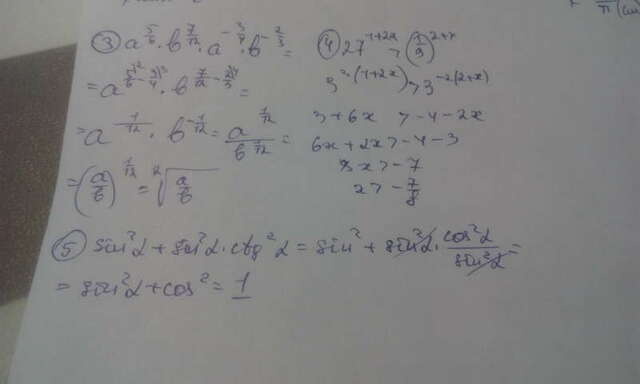 ③ a^(5/6) · b^(7/12) · a^(-3/4) · b^(-2/3) =
= a^(5/6 - 3/4) · b^(7/12 - 2/3) =
= a^(1/12) · b^(-1/12) = a^(1/12) / b^(1/12) =
= (a/b)^(1/12) = ¹²√(a/b)
④ 27^(1+2x) > (1/9)^(2+x)
3^(3·(1+2x)) > 3^(-2(2+x))
3+6x > -4-2x
6x+2x > -4-3
8x > -7
x > -7/8
⑤ sin²α + sin²α · ctg²α = sin² + sin²α · cos²α / sin²α =
= sin²α + cos² = 1